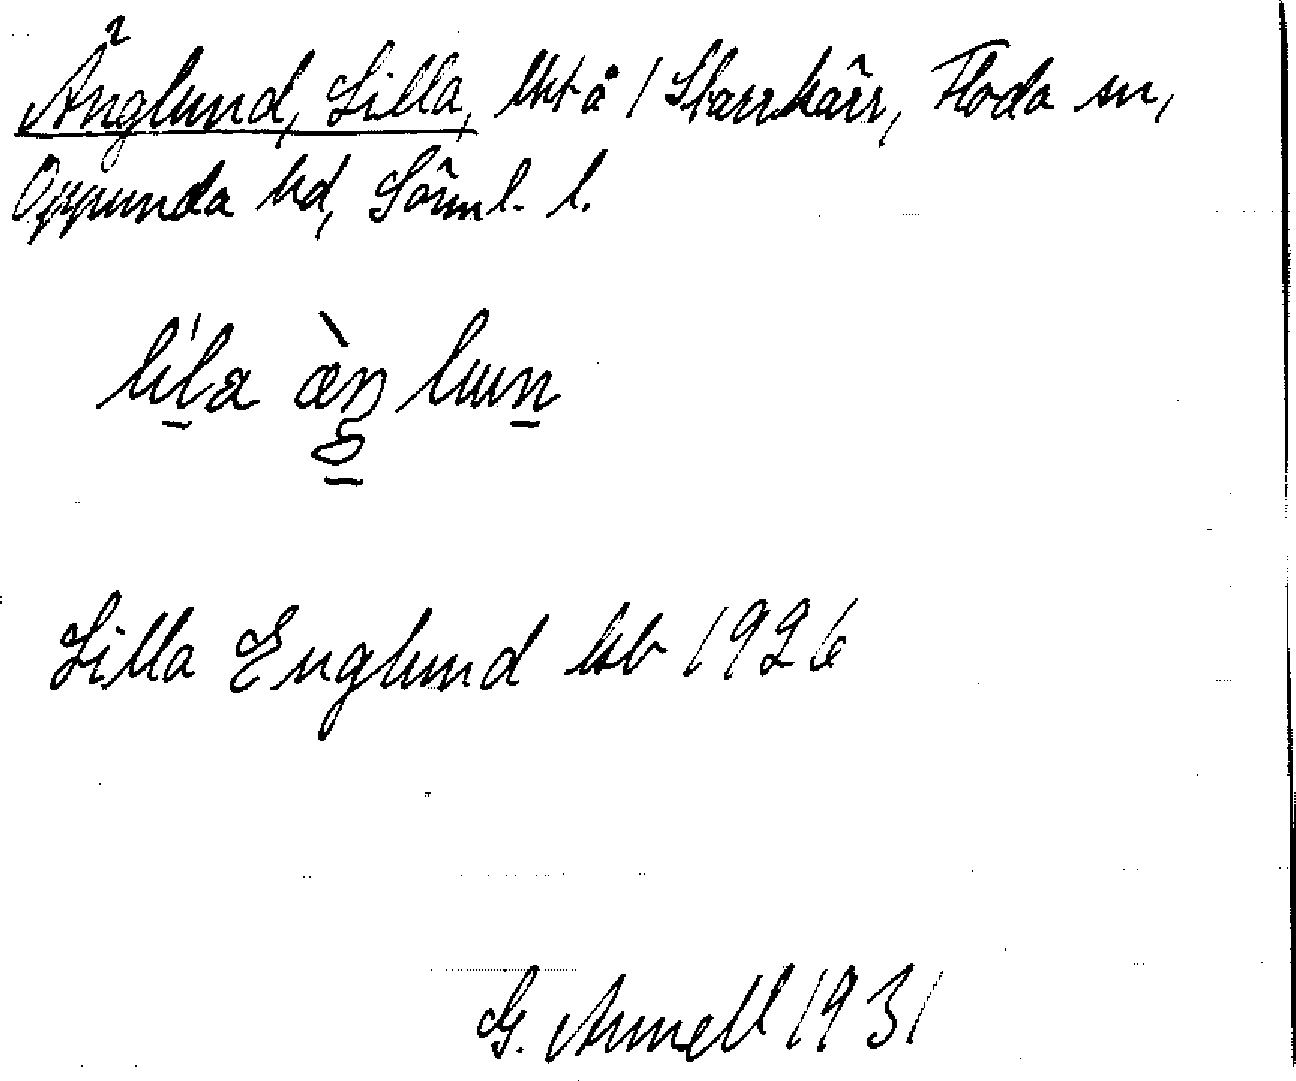 Änglund, Lilla, lht å 1 Starrkärr, Floda sn,
Oppunda hd, Sörml. l.
lila æ̀ŋ lun
Lilla Englund ksb 1926
G. Armell 1931